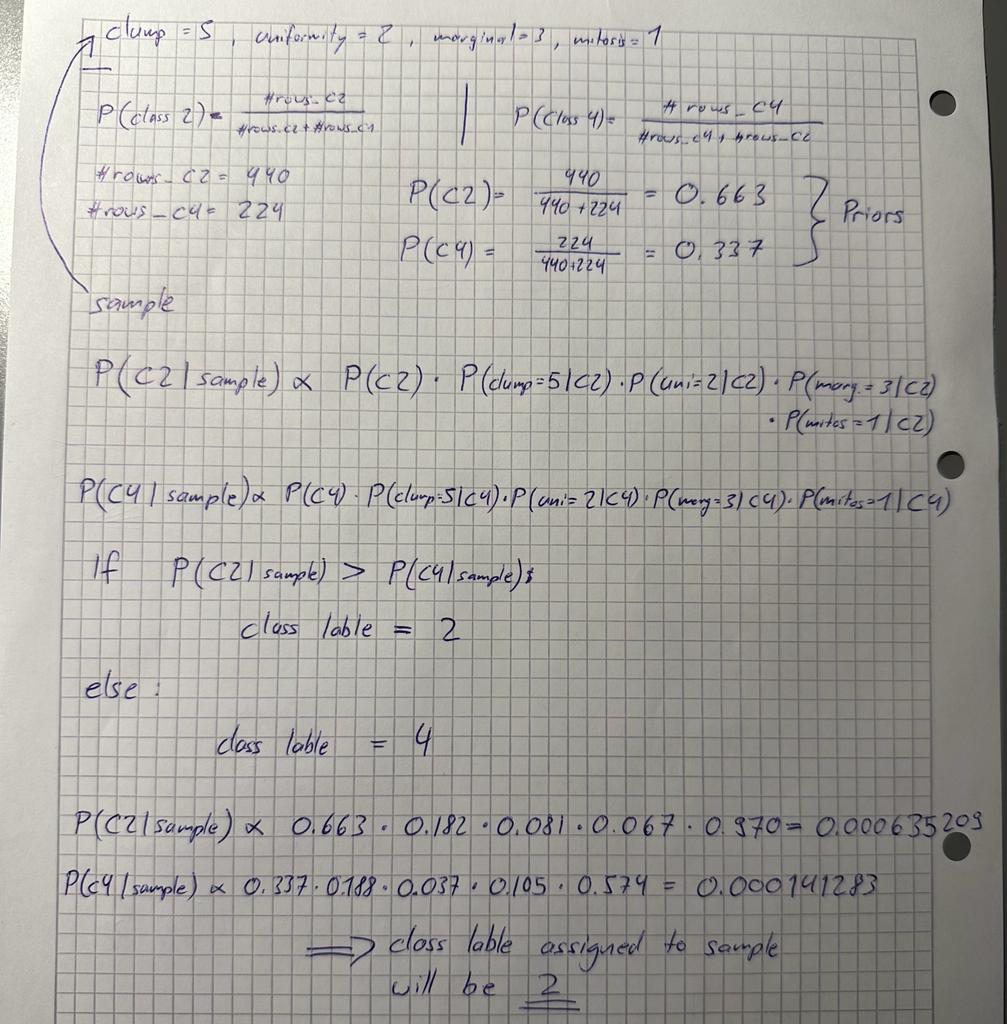 clump = 5 , uniformity = 2 , marginal = 3 , mitosis = 1
P(class 2) = #rows_c2 / #rows_c2 + #rows_c4 | P(Class 4) = # rows_C4 / #rows_c4 + #rows_C2
#rows_C2 = 440
#rows_C4 = 224
P(C2) = 440 / 440 + 224 = 0.663
P(C4) = 224 / 440+224 = 0.337
} Priors
sample
P(C2 | sample) ∝ P(C2) · P(clump=5|C2) · P(uni=2|C2) · P(marg.=3|C2)
· P(mitos=1|C2)
P(C4 | sample) ∝ P(C4) · P(clump=5|C4) · P(uni=2|C4) · P(marg=3|C4) · P(mitos=1|C4)
If P(C2 | sample) > P(C4 | sample):
class lable = 2
else :
class lable = 4
P(C2 | sample) ∝ 0.663 · 0.182 · 0.081 · 0.067 · 0.970 = 0.000635209
P(C4 | sample) ∝ 0.337 · 0.188 · 0.037 · 0.105 · 0.574 = 0.000141283
⟹ class lable assigned to sample
will be 2